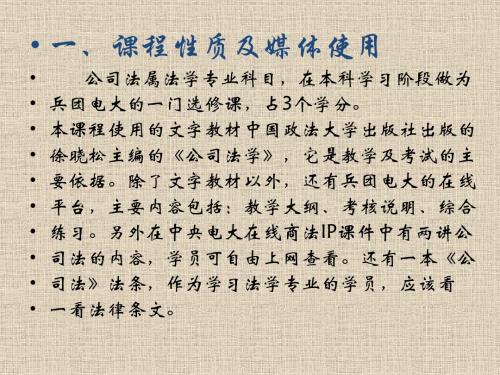 • 一、课程性质及媒体使用
• 公司法属法学专业科目，在本科学习阶段做为
• 兵团电大的一门选修课，占3个学分。
• 本课程使用的文字教材中国政法大学出版社出版的
• 徐晓松主编的《公司法学》，它是教学及考试的主
• 要依据。除了文字教材以外，还有兵团电大的在线
• 平台，主要内容包括：教学大纲、考核说明、综合
• 练习。另外在中央电大在线商法IP课件中有两讲公
• 司法的内容，学员可自由上网查看。还有一本《公
• 司法》法条，作为学习法学专业的学员，应该看
• 一看法律条文。